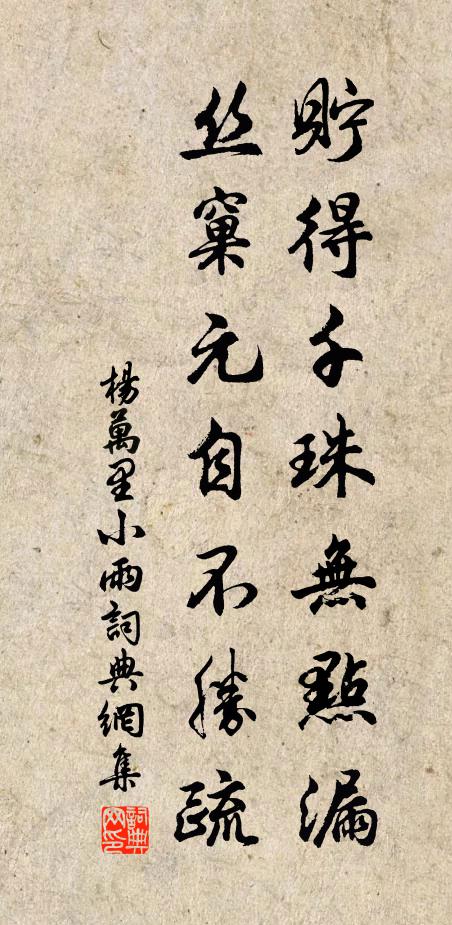 貯得千珠無點漏
丝窠元自不勝疏
楊萬里小雨詞典網集
詞典
网印